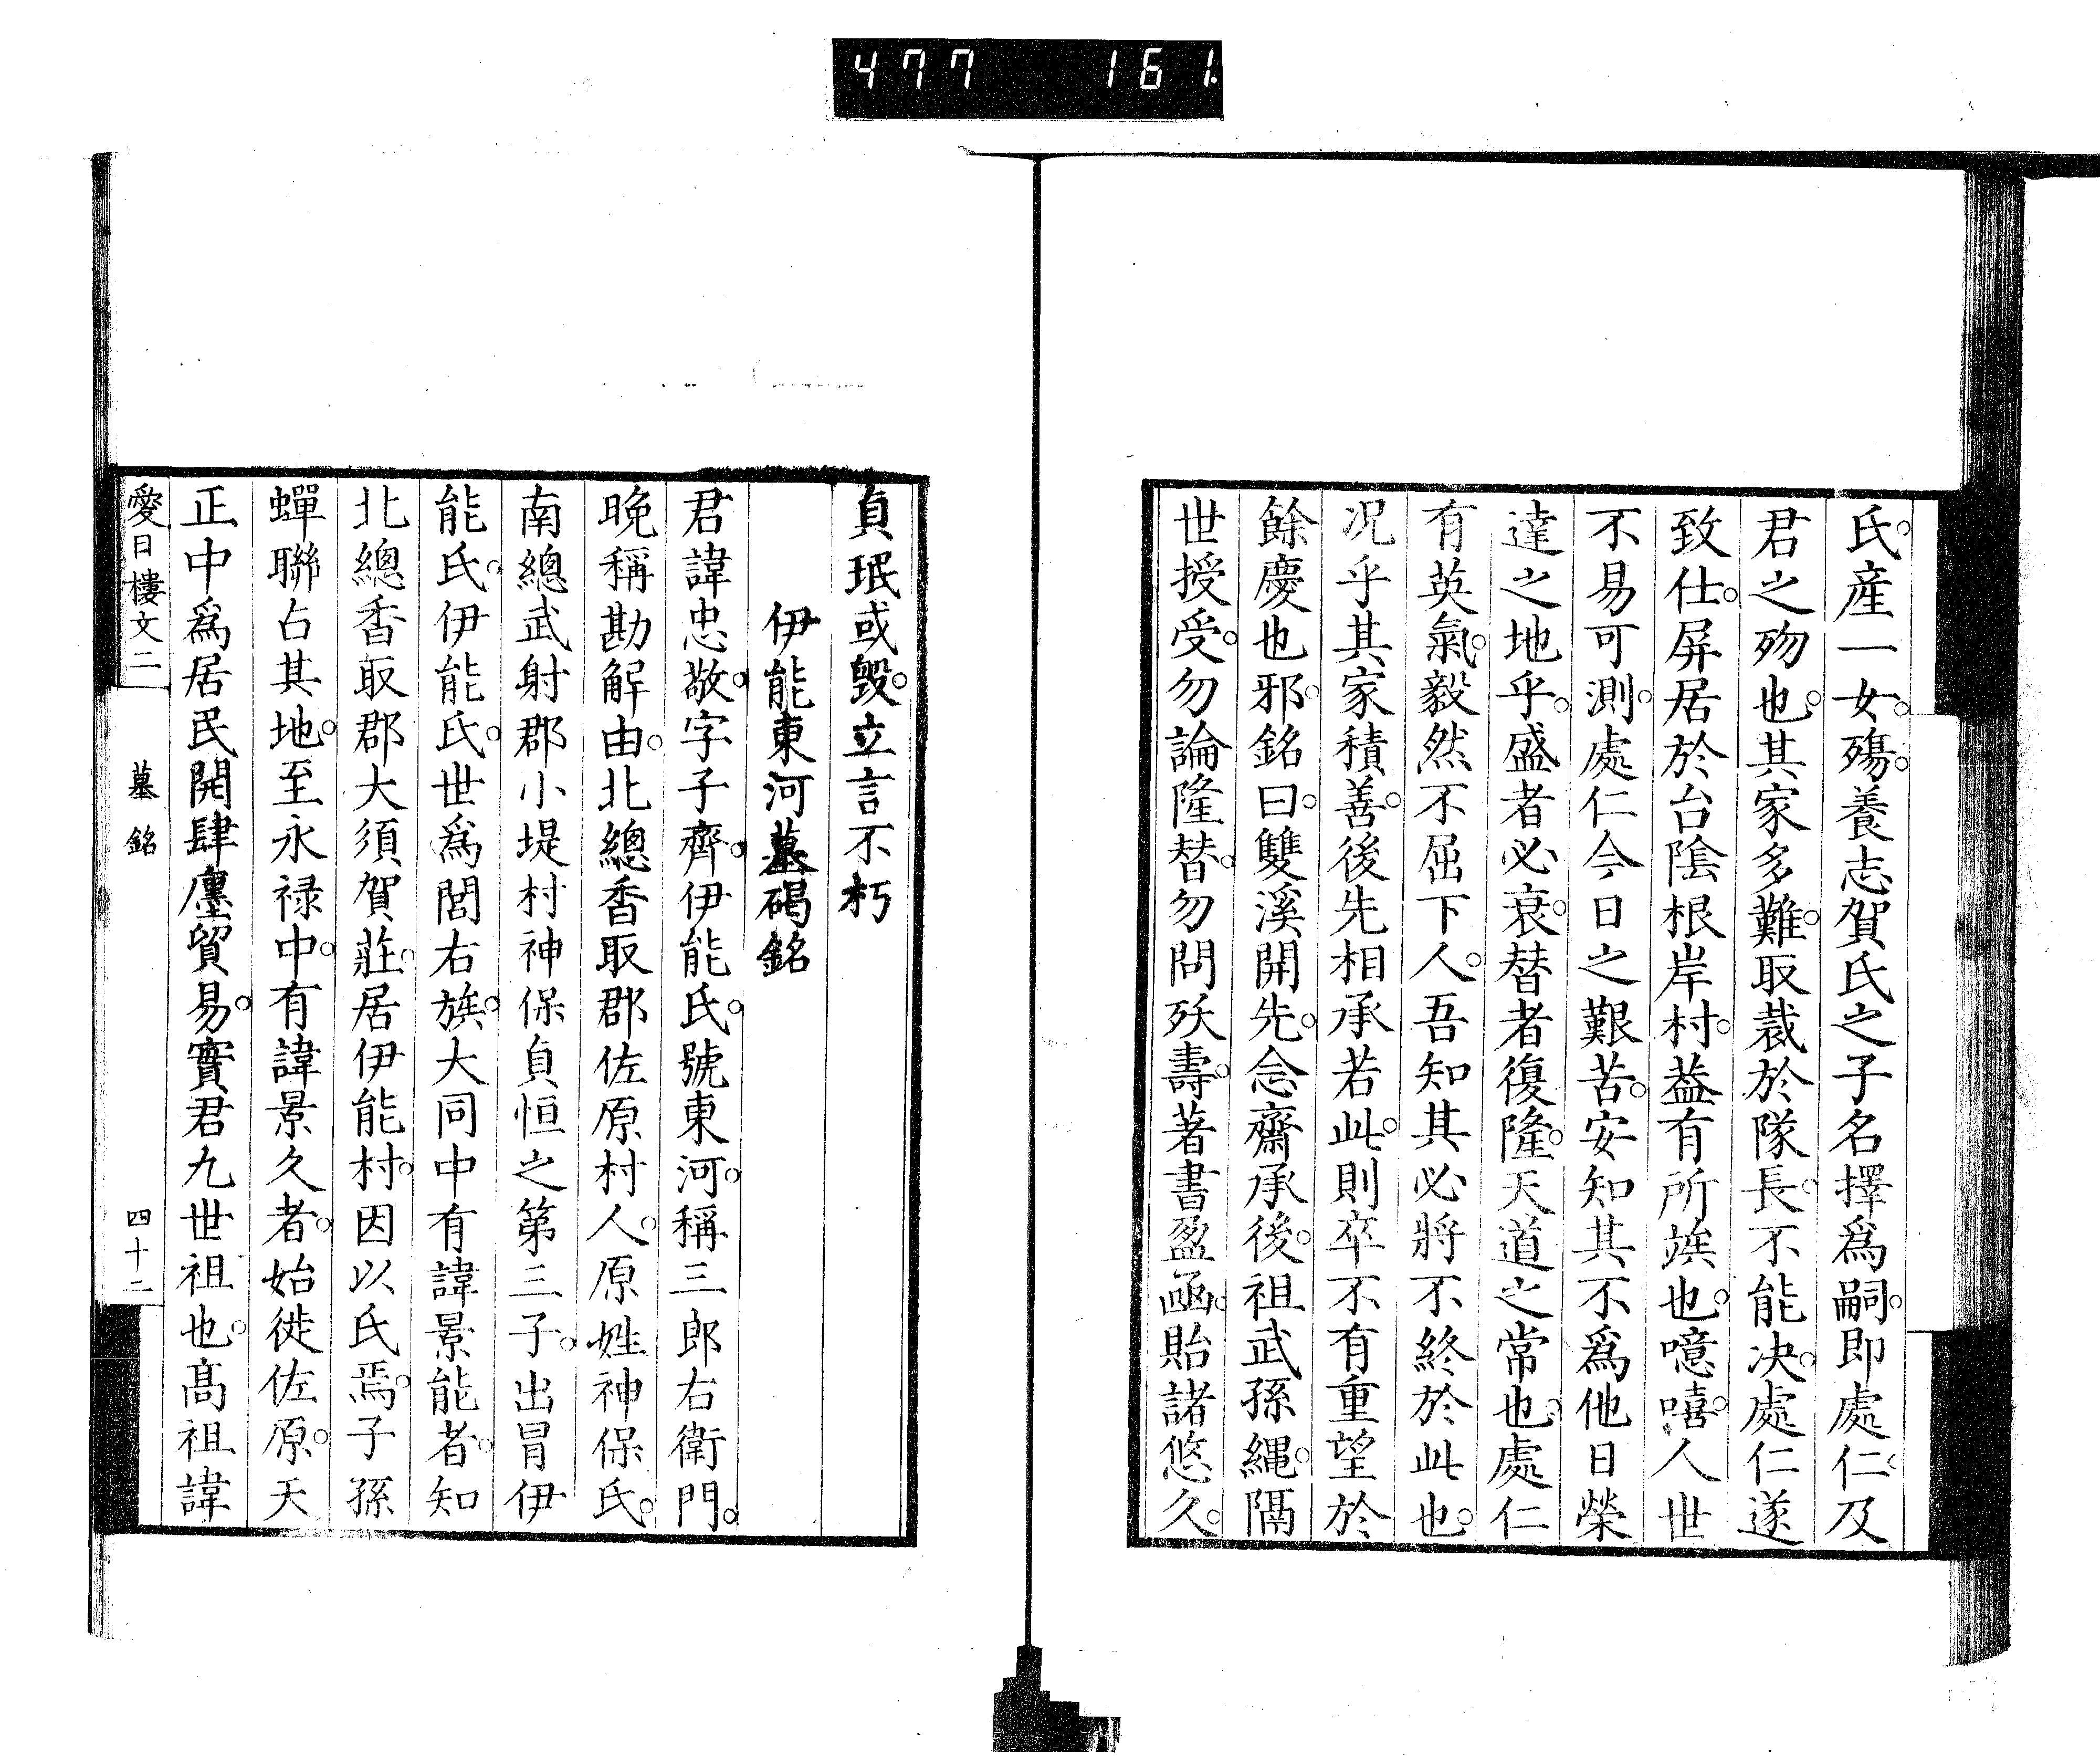 477 161
氏。産一女。殤。養志賀氏之子名擇爲嗣。即處仁。及
君之歾也。其家多難。取裁於隊長。不能决。處仁遂
致仕。屏居於台陰根岸村。益有所竢也。噫嘻。人世
不易可測。處仁今日之艱苦。安知其不爲他日榮
達之地乎。盛者必衰。替者復隆。天道之常也。處仁
有英氣。毅然不屈下人。吾知其必將不終於此也。
况乎其家積善。後先相承若此。則卒不有重望於
餘慶也邪。銘曰。雙溪開先。念齋承後。祖武孫繩。隔
世授受。勿論隆替。勿問殀壽。著書盈凾。貽諸悠久。
貞珉或毀。立言不朽
伊能東河墓碣銘
君諱忠敬。字子齊。伊能氏。號東河。稱三郎右衛門。
晩稱勘解由。北總香取郡佐原村人。原姓神保氏。
南總武射郡小堤村神保貞恒之第三子。出冒伊
能氏。伊能氏。世爲閭右族。大同中有諱景能者。知
北總香取郡大須賀莊。居伊能村。因以氏焉。子孫
蟬聯占其地。至永禄中。有諱景久者。始徙佐原。天
正中爲居民開肆廛貿易。實君九世祖也。髙祖諱
愛日樓文二
墓銘
四十二